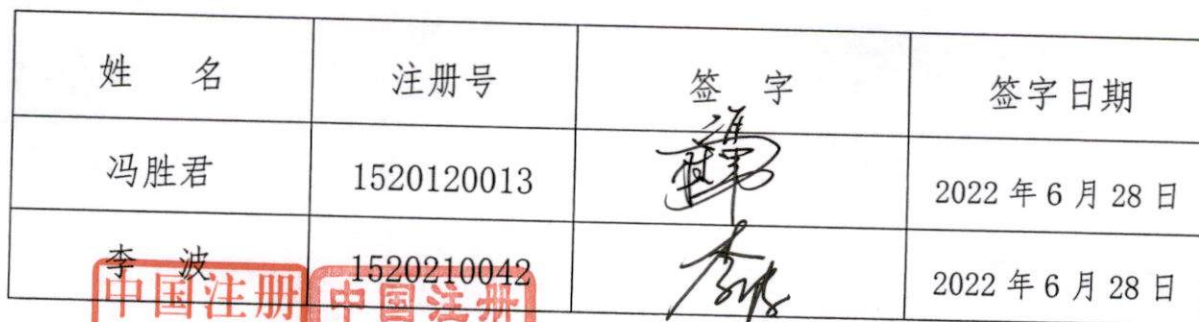 姓 名 注册号 签 字 签字日期
冯胜君 1520120013 2022 年 6 月 28 日
李 波 1520210042 2022 年 6 月 28 日
中国注册 中国注册